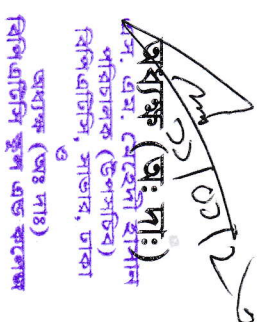 অধ্যক্ষ (অ: দা:)
এম. মেহেদী হাসান
পরিচালক (উপসচিব)
বিপিএটিসি, সাভার, ঢাকা
ও
অধ্যক্ষ (অঃ দাঃ)
বিপিএটিসি স্কুল এন্ড কলেজ